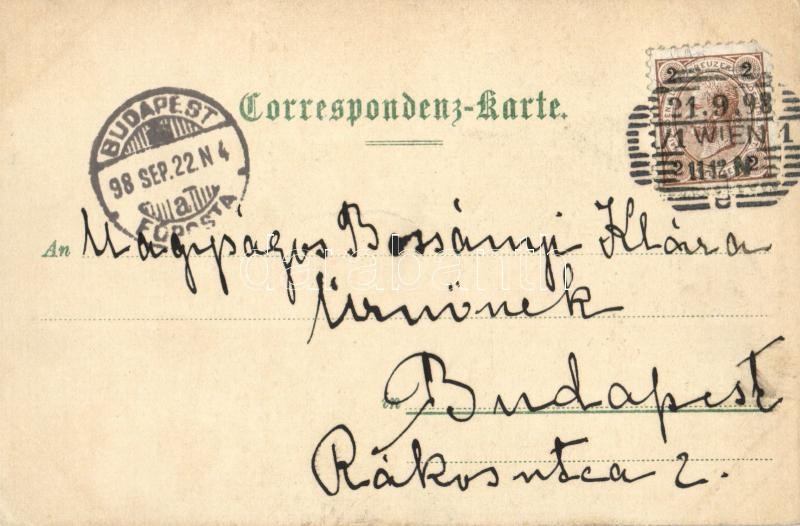 Correspondenz-Karte.
BUDAPEST
98 SEP. 22. N 4
a.
FŐPOSTA
2 KREUZER 2
21. 9. 98
1/1 WIEN 1
11-12.N
2 2
An Nagyságos Bossányi Klára
Úrnőnek
in Budapest
Rákos utca 2.
darabanth